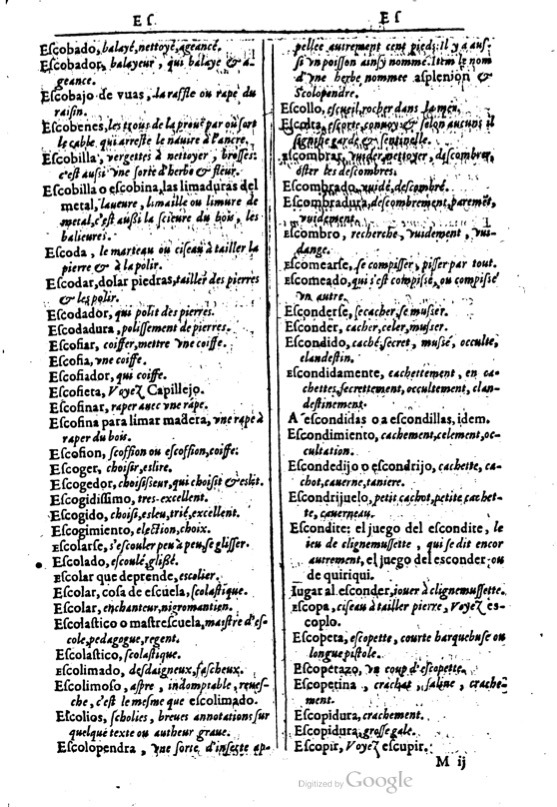 Es
Escobado, balayé, nettoyé, ageancé.
Escobador, balayeur, qui balaye & a-
geance.
Escobajo de vuas, la raffle ou rape du
raisin.
Escobenes, les trous de la prouë par où sort
le cable qui arreste le nauire à l'ancre.
Escobilla, vergettes à nettoyer, brosses:
c'est aussi vne sorte d'herbe & fleur.
Escobilla o escobina, las limaduras del
metal, laueure, limaille ou limure de
metal, c'est aussi la scieure du bois, les
balieures.
Escoda, le marteau ou ciseau à tailler la
pierre & à la polir.
Escodar, dolar piedras, tailler des pierres
& les polir.
Escodador, qui polit des pierres.
Escodadura, polissement de pierres.
Escofiar, coiffer, mettre vne coiffe.
Escofia, vne coiffe.
Escofiador, qui coiffe.
Escofieta, Voyez Capillejo.
Escofinar, raper auec vne rape.
Escofina para limar madera, vne rape à
raper du bois.
Escofion, scoffion ou escoffion, coiffe.
Escoger, choisir, eslire.
Escogedor, choisisseur, qui choisit & eslit.
Escogidissimo, tres-excellent.
Escogido, choisi, esleu, trié, excellent.
Escogimiento, election, choix.
Escolarse, s'escouler peu à peu, se glisser.
Escolado, escoulé, glissé.
Escolar que deprende, escolier.
Escolar, cosa de escuela, scolastique.
Escolar, enchanteur, nigromantien.
Escolastico o mastrescuela, maistre d'es-
cole, pedagogue, regent.
Escolastico, scolastique.
Escolimado, desdaigneux, fascheux.
Escolimoso, aspre, indomptable, reues-
che, c'est le mesme que escolimado.
Escolios, scholies, breues annotations sur
quelque texte ou autheur graue.
Escolopendra, vne sorte d'insecte ap-
Es
pellee autrement cent pieds: il y a aus-
si vn poisson ainsy nommé. Item le nom
d'vne herbe nommee asplenion &
Scolopendre.
Escollo, escueil, rocher dans la mer.
Escolta, escorte, conuoy & selon aucuns il
signifie garde & sentinelle.
escombrar, vuider, nettoyer, descombrer,
oster les descombres.
Escombrado, vuidé, descombré.
Escombradura, descombrement, parement,
vuidement.
Escombro, recherche, vuidement, vui-
dange.
Escomearse, se compisser, pisser par tout.
Escomeado, qui s'est compissé, ou compissé
vn autre.
Esconderse, se cacher, se musser.
Esconder, cacher, celer, musser.
Escondido, caché, secret, mussé, occulte,
clandestin.
Escondidamente, cachettement, en ca-
chettes, secrettement, occultement, clan-
destinement.
A escondidas o a escondillas, idem.
Escondimiento, cachement, celement, oc-
cultation.
Escondedijo o escondrijo, cachette, ca-
chot, cauerne, taniere.
Escondrijuelo, petit cachot, petite cachet-
te, cauerneau.
Escondite: el juego del escondite, le
ieu de clignemussette, qui se dit encor
autrement, el juego del esconder: ou
de quiriqui.
Iugar al esconder, jouer à clignemussette.
Escopa, ciseau à tailler pierre, Voyez es-
coplo.
Escopeta, escopette, courte harquebuse ou
longue pistole.
Escopetazo, vn coup d'escopette.
Escopetina, crachat, saline, crache-
ment.
Escopidura, crachement.
Escopidura, grosse gale.
Escopir, Voyez escupir.
M ij
Digitized by Google